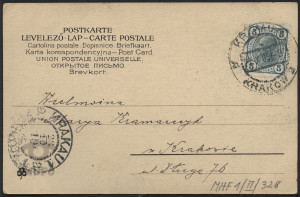 POSTKARTE
LEVELEZŐ-LAP - CARTE POSTALE
Cartolina postale. Dopisnice. Briefkaart.
Karta korespondencyjna - Post Card.
UNION POSTALE UNIVERSELLE.
ОТКРЫТОЕ ПИСЬМО.
Brevkort.
5 5
KRAKÓW
Wielmożna
Marya Kramarczyk
w Krakowie
ul. Długa 76
MHF 1/II/328